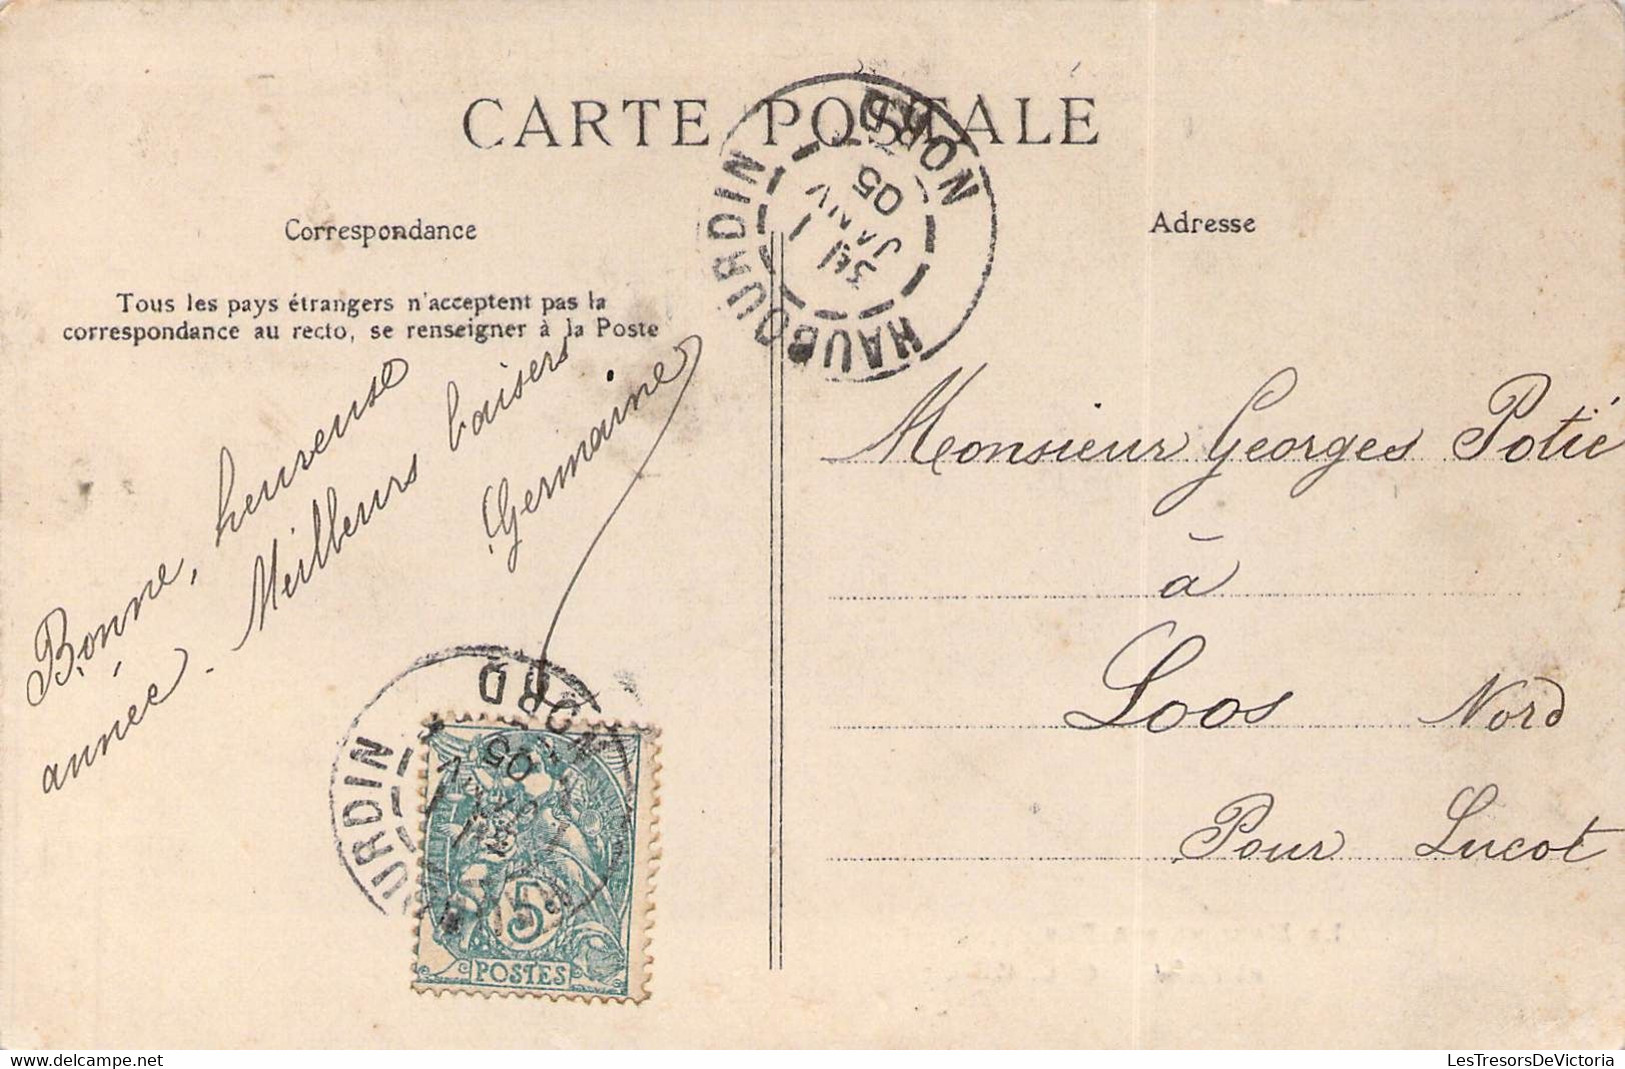 CARTE POSTALE
Correspondance
Adresse
Tous les pays étrangers n'acceptent pas la
correspondance au recto, se renseigner à la Poste
Bonne, heureuse
année. Meilleurs baisers
Germaine
Monsieur Georges Potié
à
Loos Nord
Pour Lucot
HAUBOURDIN
NORD
JANV
05
URDIN
NORD
05
5
POSTES
LesTresorsDeVictoria